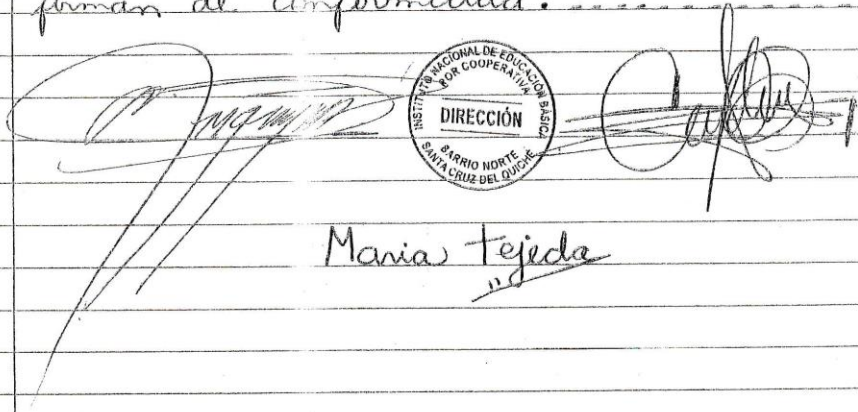 firman de conformidad.
INSTITUTO NACIONAL DE EDUCACIÓN BÁSICA
POR COOPERATIVA
DIRECCIÓN
BARRIO NORTE
SANTA CRUZ DEL QUICHÉ
Maria Tejeda